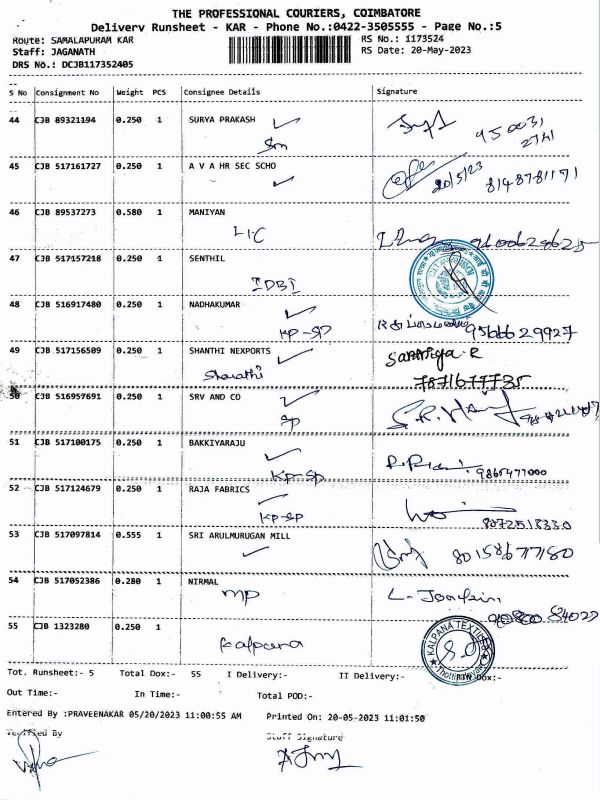 THE PROFESSIONAL COURIERS, COIMBATORE
Delivery Runsheet - KAR - Phone No.:0422-3505555 - Page No.:5
Route: SAMALAPURAM KAR RS No.: 1173524
Staff: JAGANATH RS Date: 20-May-2023
DRS No.: DCJB117352405
S No Consignment No Weight PCS Consignee Details Signature
44 CJB 89321194 0.250 1 SURYA PRAKASH
45 CJB 517161727 0.250 1 A V A HR SEC SCHO
20/5/23 8148781171
46 CJB 89537273 0.580 1 MANIYAN
LIC
47 CJB 517157218 0.250 1 SENTHIL
IDBI
48 CJB 516917480 0.250 1 NADHAKUMAR
KP-SP 9566629927
49 CJB 517156509 0.250 1 SHANTHI NEXPORTS
Sharathi 7871677735
50 CJB 516957691 0.250 1 SRV AND CO
SP
51 CJB 517100175 0.250 1 BAKKIYARAJU
KP-SP 9865477000
52 CJB 517124679 0.250 1 RAJA FABRICS
KP-SP 8072518330
53 CJB 517097814 0.555 1 SRI ARULMURUGAN MILL
8015867780
54 CJB 517052386 0.280 1 NIRMAL
MP
55 CJB 1323280 0.250 1
Kalpana
KALPANA TEXTILES
Tot. Runsheet:- 5 Total Dox:- 55 I Delivery:- II Delivery:- RTN Dox:-
Out Time:- In Time:- Total POD:-
Entered By :PRAVEENAKAR 05/20/2023 11:00:55 AM Printed On: 20-05-2023 11:01:50
Verified By Staff Signature